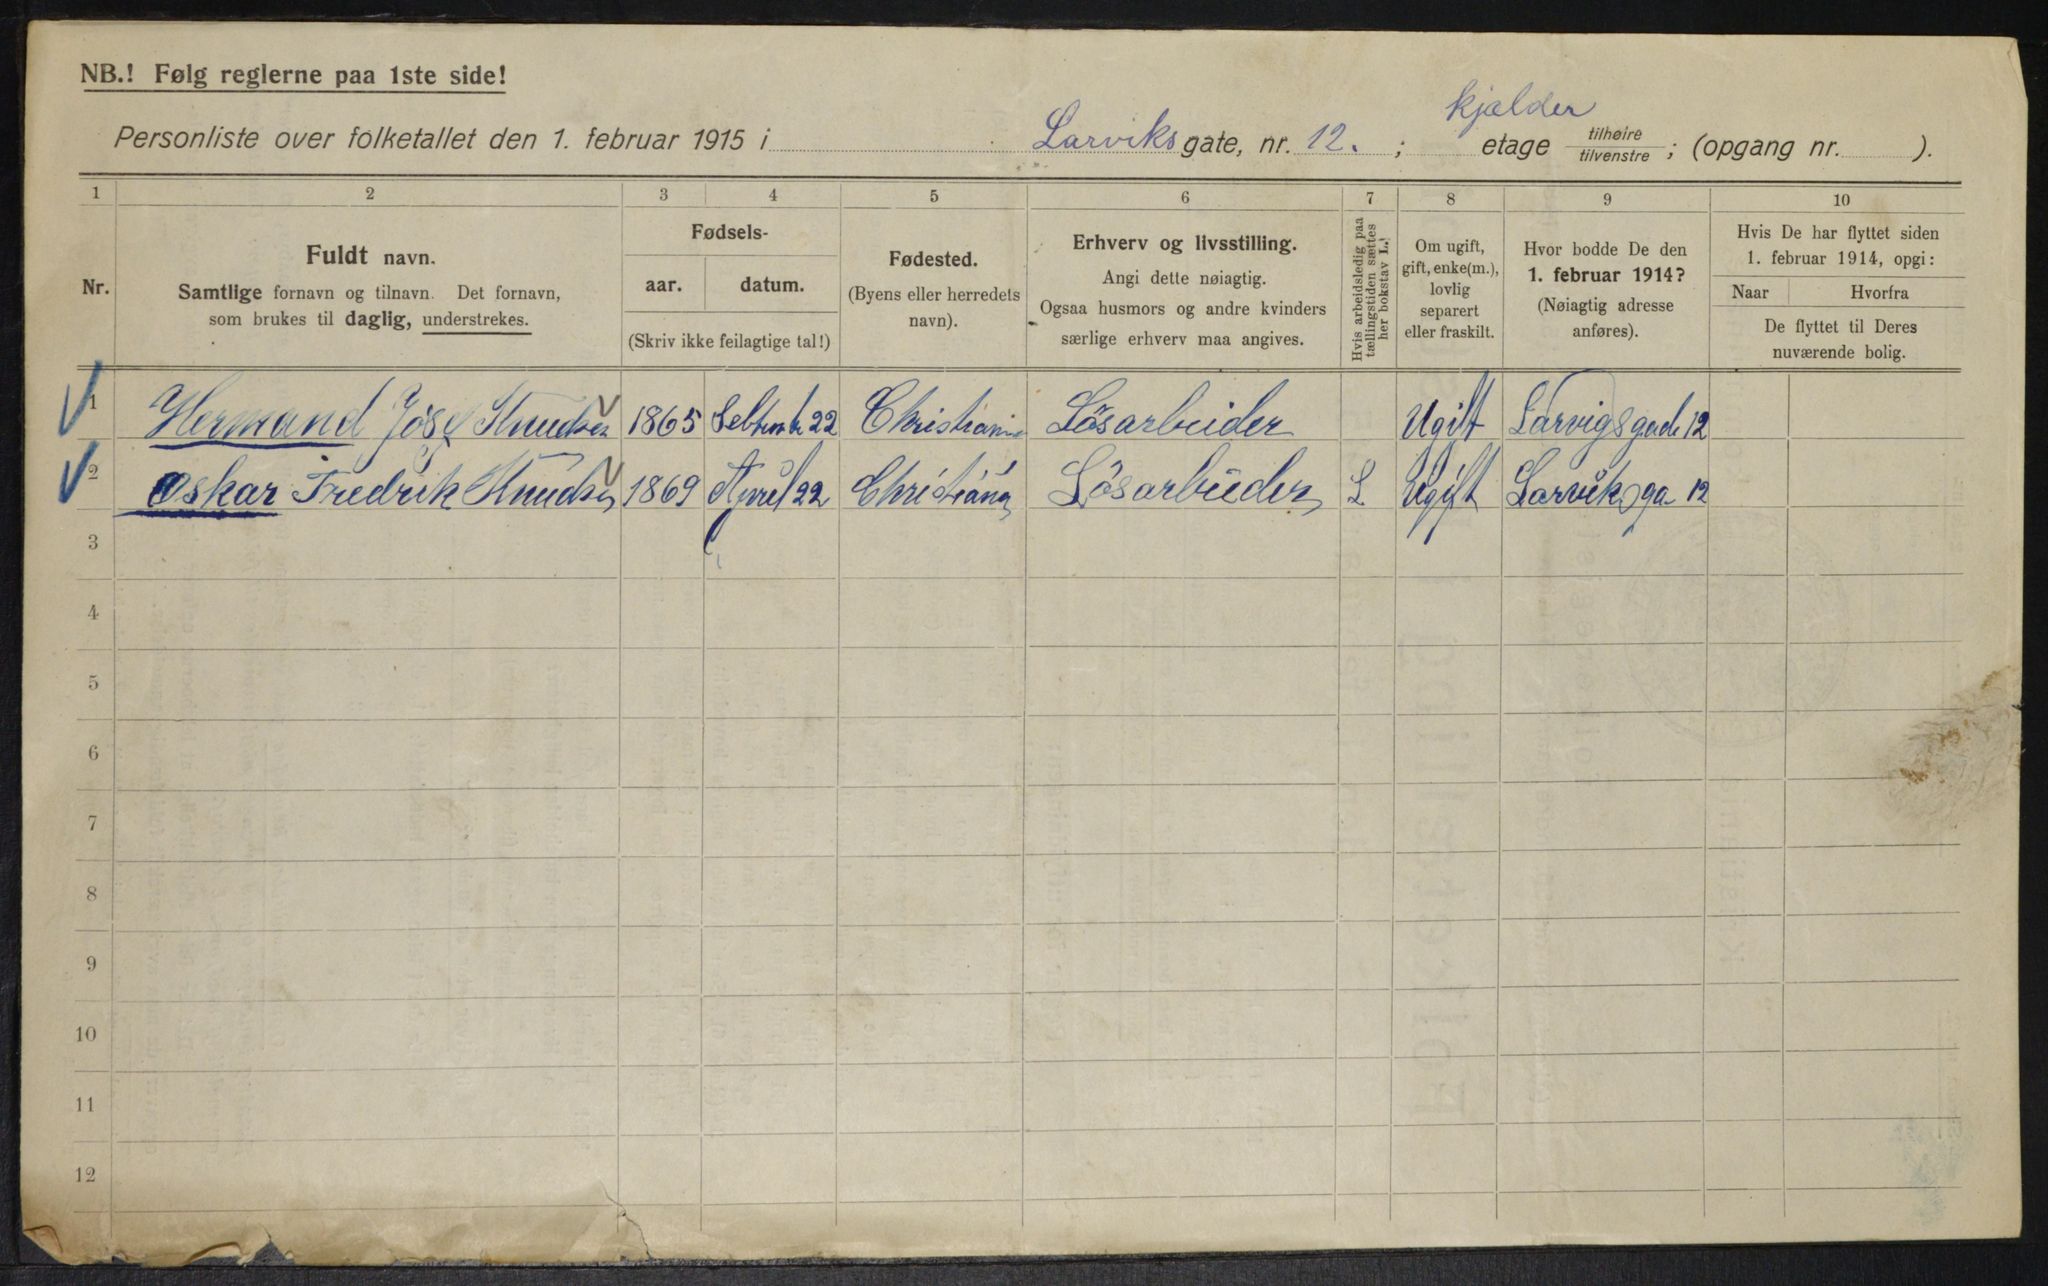 NB.! Følg reglerne paa 1ste side!
kjælder
Personliste over folketallet den 1. februar 1915 i Larviksgate, nr. 12. ; etage tilhøire/tilvenstre ; (opgang nr. ).
1 2 3 4 5 6 7 8 9 10
Nr.
Fuldt navn.
Samtlige fornavn og tilnavn. Det fornavn,
som brukes til daglig, understrekes.
Fødsels-
aar. datum.
(Skriv ikke feilagtige tal!)
Fødested.
(Byens eller herredets
navn).
Erhverv og livsstilling.
Angi dette nøiagtig.
Ogsaa husmors og andre kvinders
særlige erhverv maa angives.
Hvis arbeidsledig paa
tællingstiden sættes
her bokstav L.!
Om ugift,
gift, enke(m.),
lovlig
separert
eller fraskilt.
Hvor bodde De den
1. februar 1914?
(Nøiagtig adresse
anføres).
Hvis De har flyttet siden
1. februar 1914, opgi:
Naar Hvorfra
De flyttet til Deres
nuværende bolig.
1 Hermand Josef Knudsen 1865 22 Christiania Lösarbeider Ugift Larvigsgade 12
2 Oskar Fredrik Knudsen 1869 April 22 Christiania Lösarbeider L Ugift Larviksga 12
3
4
5
6
7
8
9
10
11
12